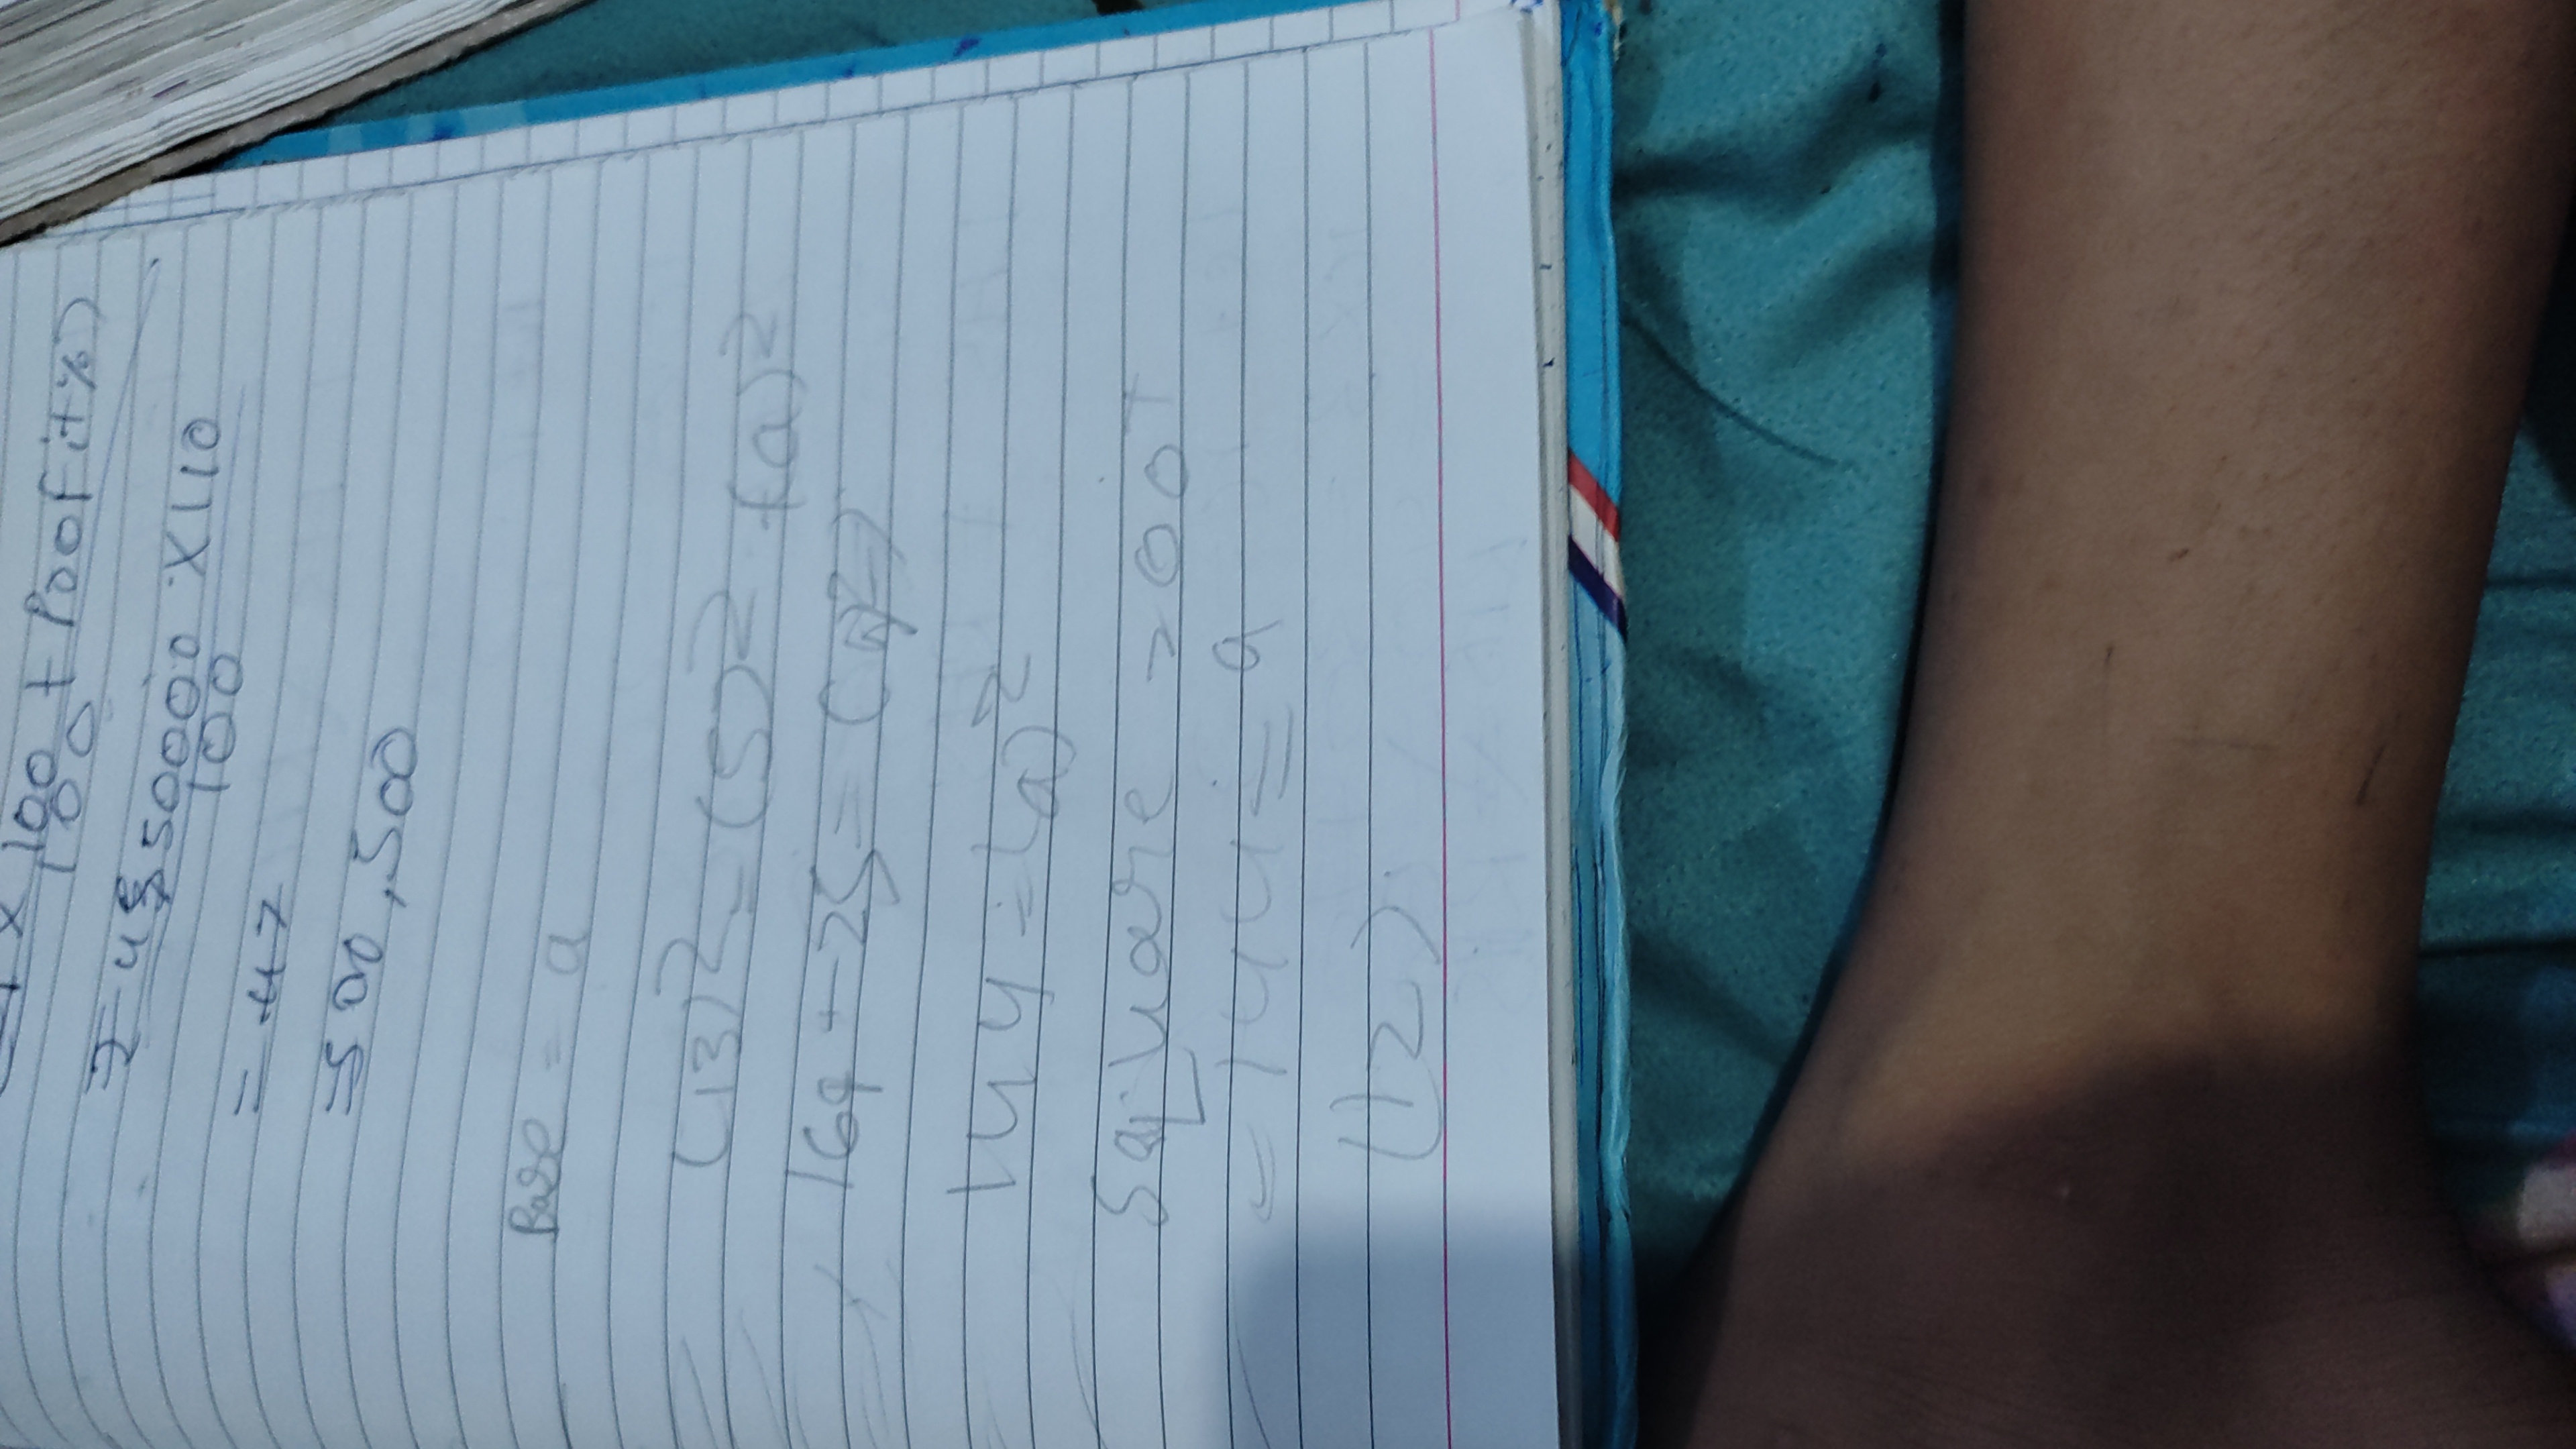 × 100 + Poofit%)
100
= 4550000 × 110
100
= 47
= 500,500
Base = a
(13)² = (5)² + (a)²
169 - 25 = (a²)
144 = (a)²
Square root
= 144 = a
(12)